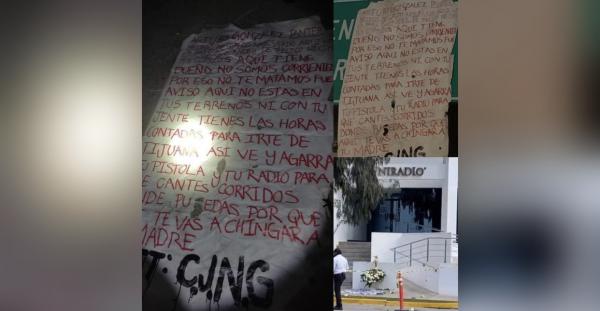 GONZALEZ
AQUI TIENE
DUEÑO NO SOMOS CORRIENTES
POR ESO NO TE MATAMOS FUE
AVISO AQUI NO ESTAS EN
TUS TERRENOS NI CON TU
JENTE TIENES LAS HORAS
CONTADAS PARA IRTE DE
TIJUANA ASI VE Y AGARRA
TU PISTOLA Y TU RADIO PARA
QUE CANTES CORRIDOS
DONDE PUEDAS POR QUE
TE VAS A CHINGAR A
MADRE
CJNG
GONZALEZ
AQUI TIENE
DUEÑO NO SOMOS CORRIENTES
POR ESO NO TE MATAMOS FUE
AVISO AQUI NO ESTAS EN
TUS TERRENOS NI CON TU
JENTE TIENES LAS HORAS
CONTADAS PARA IRTE DE
TIJUANA ASI VE Y AGARRA
TU PISTOLA Y TU RADIO PARA
QUE CANTES CORRIDOS
DONDE PUEDAS POR QUE
AQUI TE VAS A CHINGAR A
TU MADRE
CJNG
NIRADIO